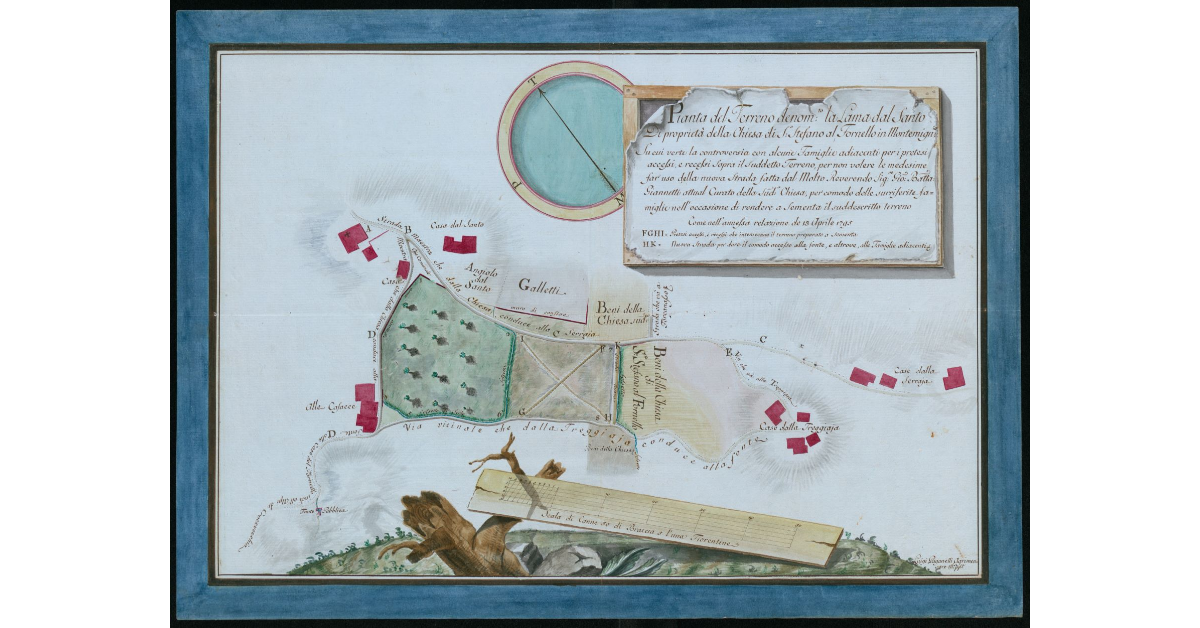 T
P
N
Pianta del Terreno denom.º la Lama dal Santo
Di proprietà della Chiesa di S. Stefano al Fornello in Montemigni
Su cui verte la controversia con alcune Famiglie adiacenti per i pretesi
accessi, e recessi sopra il suddetto Terreno, per non volere le medesime
far uso della nuova Strada fatta dal Molto Reverendo Sig.r Gio. Batta
Giannetti attual Curato della Sud.a Chiesa, per comodo delle surriferite fa-
miglie nell'occasione di rendere a Sementa il suddescritto terreno
Come nell'annessa relazione de 18 Aprile 1795
FGHI. Pretesi accessi, e recessi che intersecano il terreno preparato a Sementa
HK. Nuova Strada per dare il comodo accesso alla fonte, e altrove, alle Famiglie adiacenti
Strada
maestra che dalla Chiesa conduce alla Serraja
A
B
Casa dal Santo
Angiolo
dal
Santo
Galletti
Beni della
Chiesa sud.a
Case
D
I
C
F
K
E
C
Via che va alla Treggiaja
Case dalla
Serraja
Case dalla Treggiaja
Beni della Chiesa
di
S. Stefano al Fornello
Alle Casacce
D
G
H
Via vicinale che dalla Treggiaja conduce alla fonte
Beni della Chiesa
Fonte Pubblica
Scala di Canne 20 di Braccia 5 l'una Fiorentine